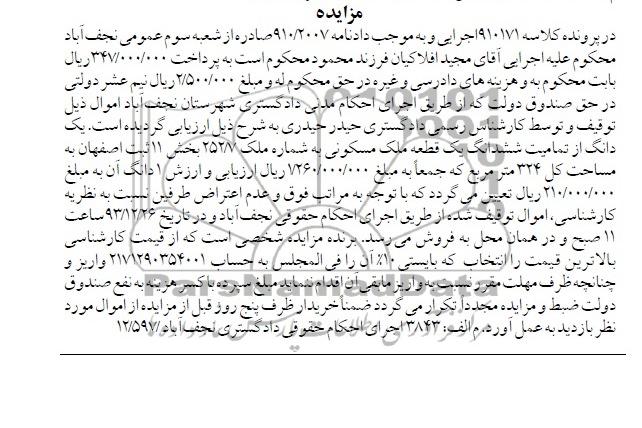 مزایده
در پرونده کلاسه ۹۱۰۱۷۱اجرایی و به موجب دادنامه ۹۱۰/۲۰۰۷صادره از شعبه سوم عمومی نجف آباد
محکوم علیه اجرایی آقای مجید افلاکیان فرزند محمود محکوم است به پرداخت ۳۴۷/۰۰۰/۰۰۰ ریال
بابت محکوم به و هزینه های دادرسی و غیره در حق محکوم له و مبلغ ۲/۵۰۰/۰۰۰ریال نیم عشر دولتی
در حق صندوق دولت که از طریق اجرای احکام مدنی دادگستری شهرستان نجف آباد اموال ذیل
توقیف و توسط کارشناس رسمی دادگستری حیدر حیدری به شرح ذیل ارزیابی گردیده است. یک
دانگ از تمامیت ششدانگ یک قطعه ملک مسکونی به شماره ملک ۲۵۲/۷ بخش ۱۱ ثبت اصفهان به
مساحت کل ۳۲۴ متر مربع که جمعاً به مبلغ ۱/۲۶۰/۰۰۰/۰۰۰ ریال ارزیابی و ارزش ۱ دانگ آن به مبلغ
۲۱۰/۰۰۰/۰۰۰ ریال تعیین می گردد که با توجه به مراتب فوق و عدم اعتراض طرفین نسبت به نظریه
کارشناسی، اموال توقیف شده از طریق اجرای احکام حقوقی نجف آباد و در تاریخ ۹۳/۱۲/۲۶ ساعت
۱۱ صبح و در همان محل به فروش می رسد. برنده مزایده شخصی است که از قیمت کارشناسی
بالاترین قیمت را انتخاب که بایستی ۱۰٪ آن را فی المجلس به حساب ۲۱۷۱۲۹۰۳۵۴۰۰۱ واریز و
چنانچه ظرف مهلت مقرر نسبت به واریز مابقی آن اقدام ننماید مبلغ سپرده با کسر هزینه به نفع صندوق
دولت ضبط و مزایده مجدداً تکرار می گردد ضمناً خریدار ظرف پنج روز قبل از مزایده از اموال مورد
نظر بازدید به عمل آورد. م الف: ۳۸۴۳ اجرای احکام حقوقی دادگستری نجف آباد /۱۲/۵۹۷